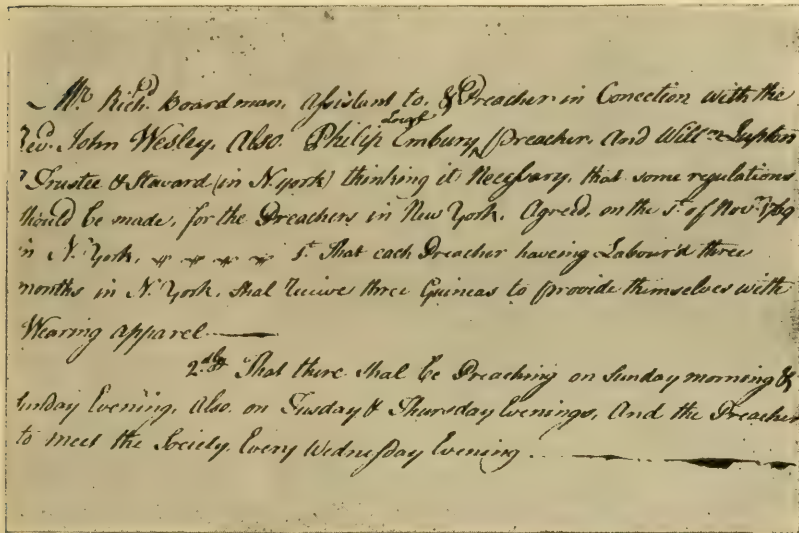 Mr. Richd. Boardman, Assistant to, & Preacher in Conection with the
Rev. John Wesley, Also. Philip Embury Local preacher, And Willm. Lupton
Trustee & Staward (in N. york) thinking it Necessary, that some regulations
should be made, for the Preachers in New York, Agreed, on the 1st. of Novr. 1769
in N. York, 1st. That each Preacher haveing Labour'd three
months in N. York, shal Recive three Guineas to provide themselves with
Wearing apparel
2dly. That there shal be Preaching on Sunday morning &
Sunday Evening, Also on Tusday & Thursday Evenings, And the Preacher
to meet the Society, Every Wednesday Evening